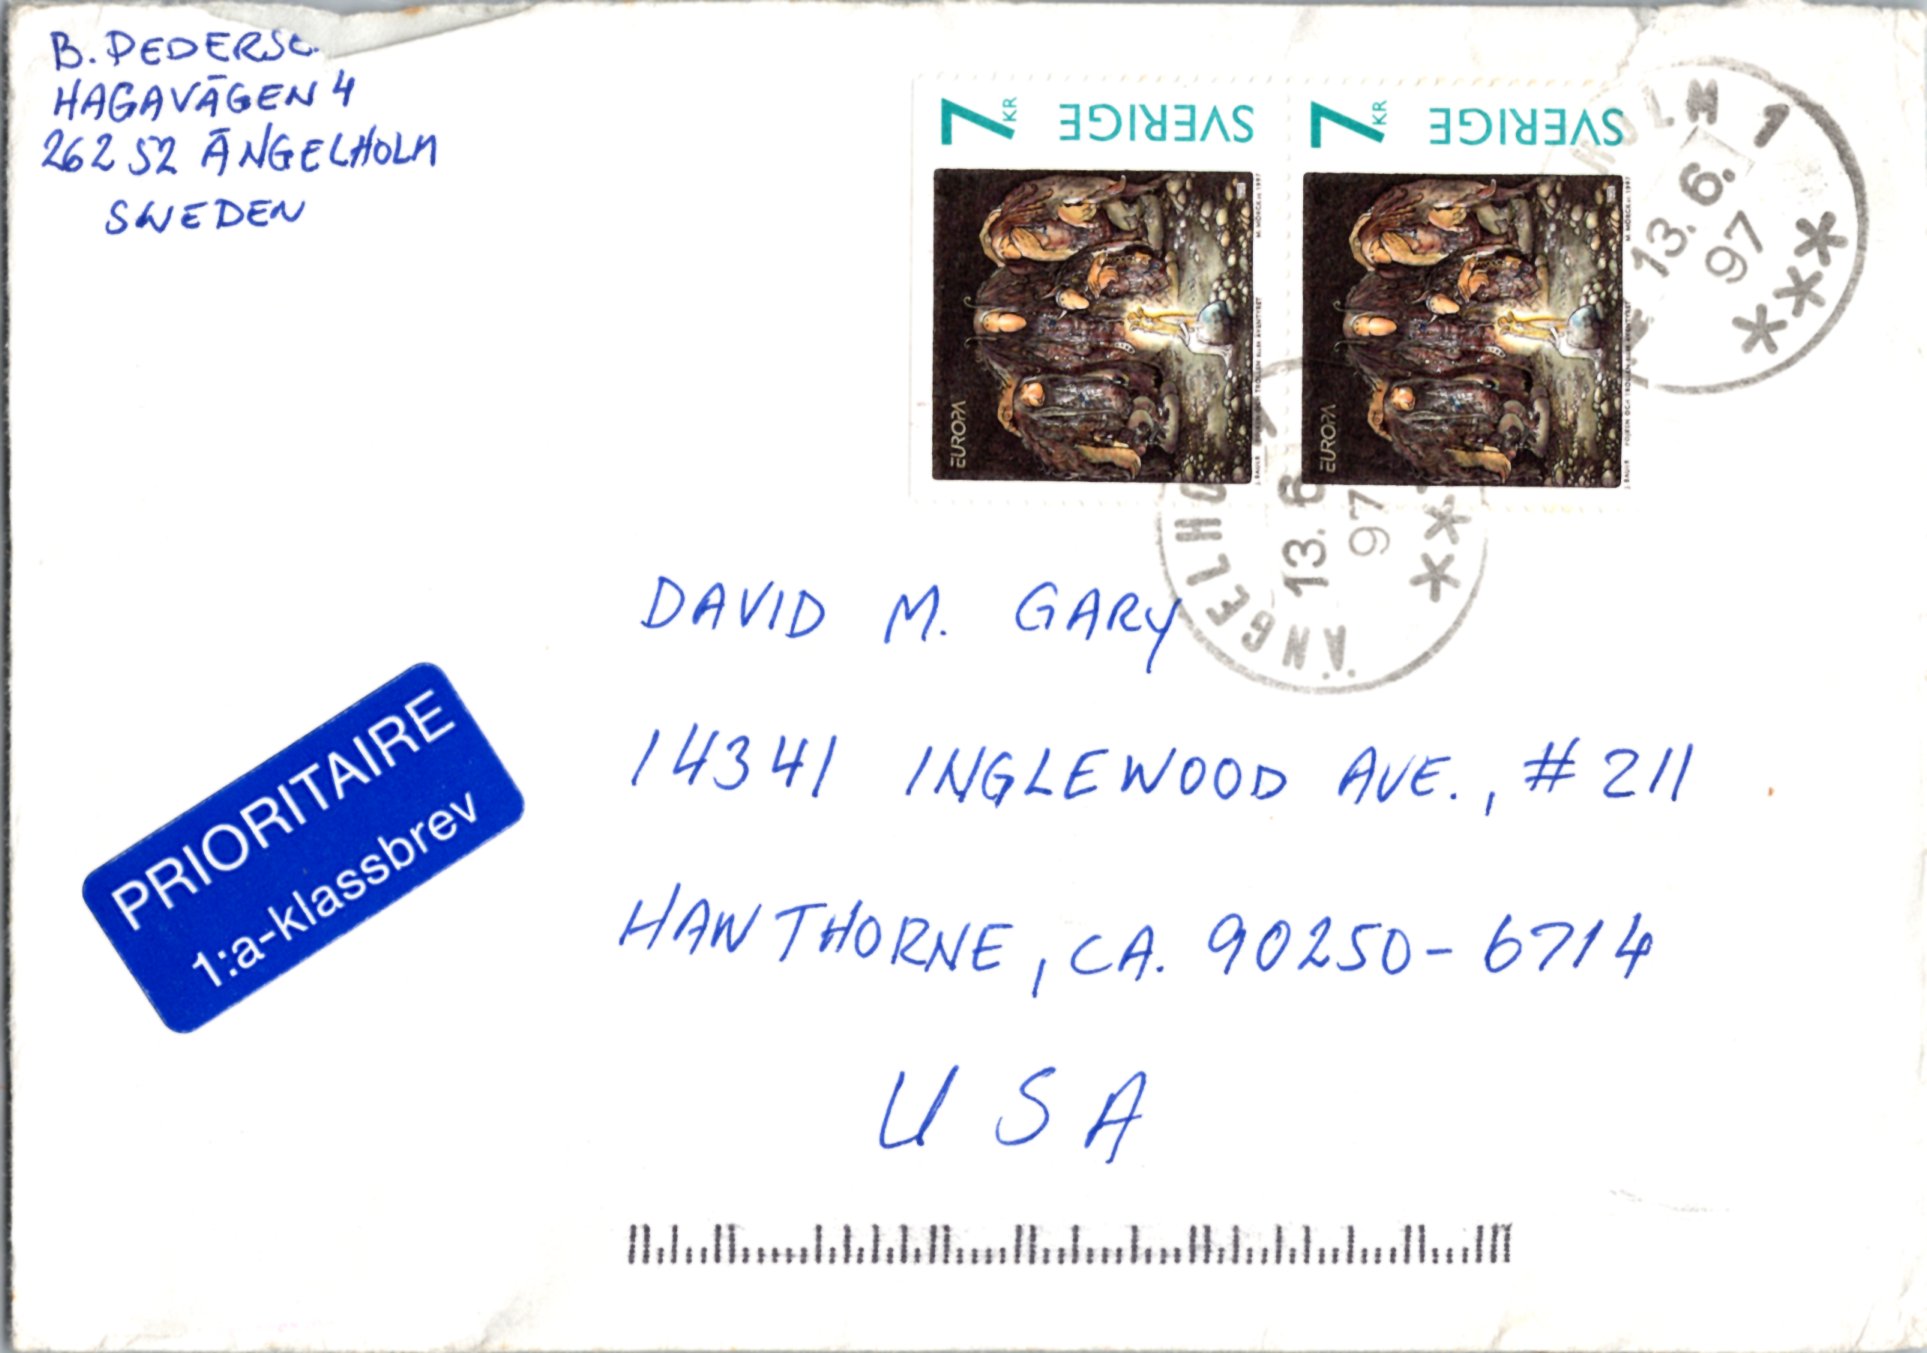 B. PEDERSE
HAGAVÄGEN 4
262 52 ÄNGELHOLM
SWEDEN
7 KR SVERIGE
EUROPA
M. MÖRCK sc 1997
7 KR SVERIGE
EUROPA
M. MÖRCK sc 1997
HOLM 1
13. 6.
97
***
ÄNGELHO
13. 6
97
DAVID M. GARY
14341 INGLEWOOD AVE., # 211
HAWTHORNE, CA. 90250-6714
USA
PRIORITAIRE
1:a-klassbrev